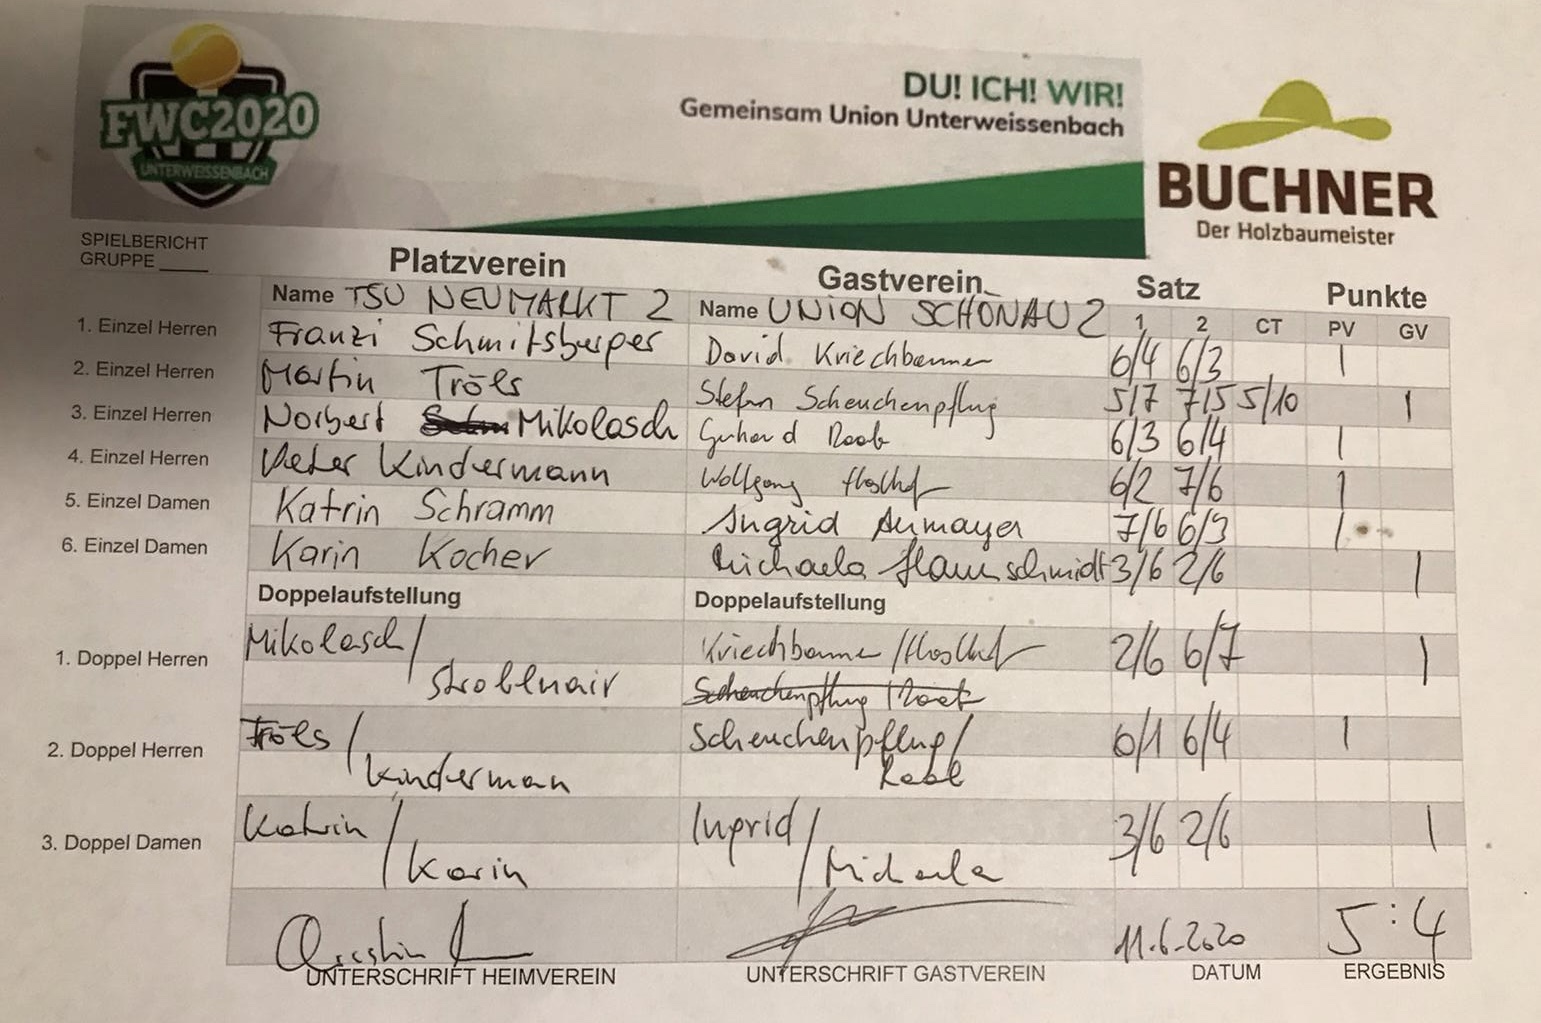 FWC2020
UNTERWEISSENBACH
DU! ICH! WIR!
Gemeinsam Union Unterweissenbach
BUCHNER
Der Holzbaumeister
SPIELBERICHT
GRUPPE
Platzverein Gastverein Satz Punkte
Name TSU NEUMARKT 2 Name UNION SCHÖNAU 2 1 2 CT PV GV
1. Einzel Herren Franzi Schmitsberger David Kriechbaumer 6/4 6/3 1
2. Einzel Herren Martin Tröls Stefan Scheuchenpflug 5/7 7/5 5/10 1
3. Einzel Herren Norbert Mikolasch Gerhard Raab 6/3 6/4 1
4. Einzel Herren Peter Kindermann Wolfgang 6/2 7/6 1
5. Einzel Damen Katrin Schramm Ingrid Aumayer 7/6 6/3 1
6. Einzel Damen Karin Kocher Michaela Haunschmidt 3/6 2/6 1
Doppelaufstellung Doppelaufstellung
1. Doppel Herren Mikolasch / Kriechbaumer / 2/6 6/7 1
Stroblmair Scheuchenpflug / Raab
2. Doppel Herren Tröls / Scheuchenpflug / 6/1 6/4 1
Kinderman Raab
3. Doppel Damen Katrin / Ingrid / 3/6 2/6 1
Karin Michaela
11.6.2020 5:4
UNTERSCHRIFT HEIMVEREIN UNTERSCHRIFT GASTVEREIN DATUM ERGEBNIS